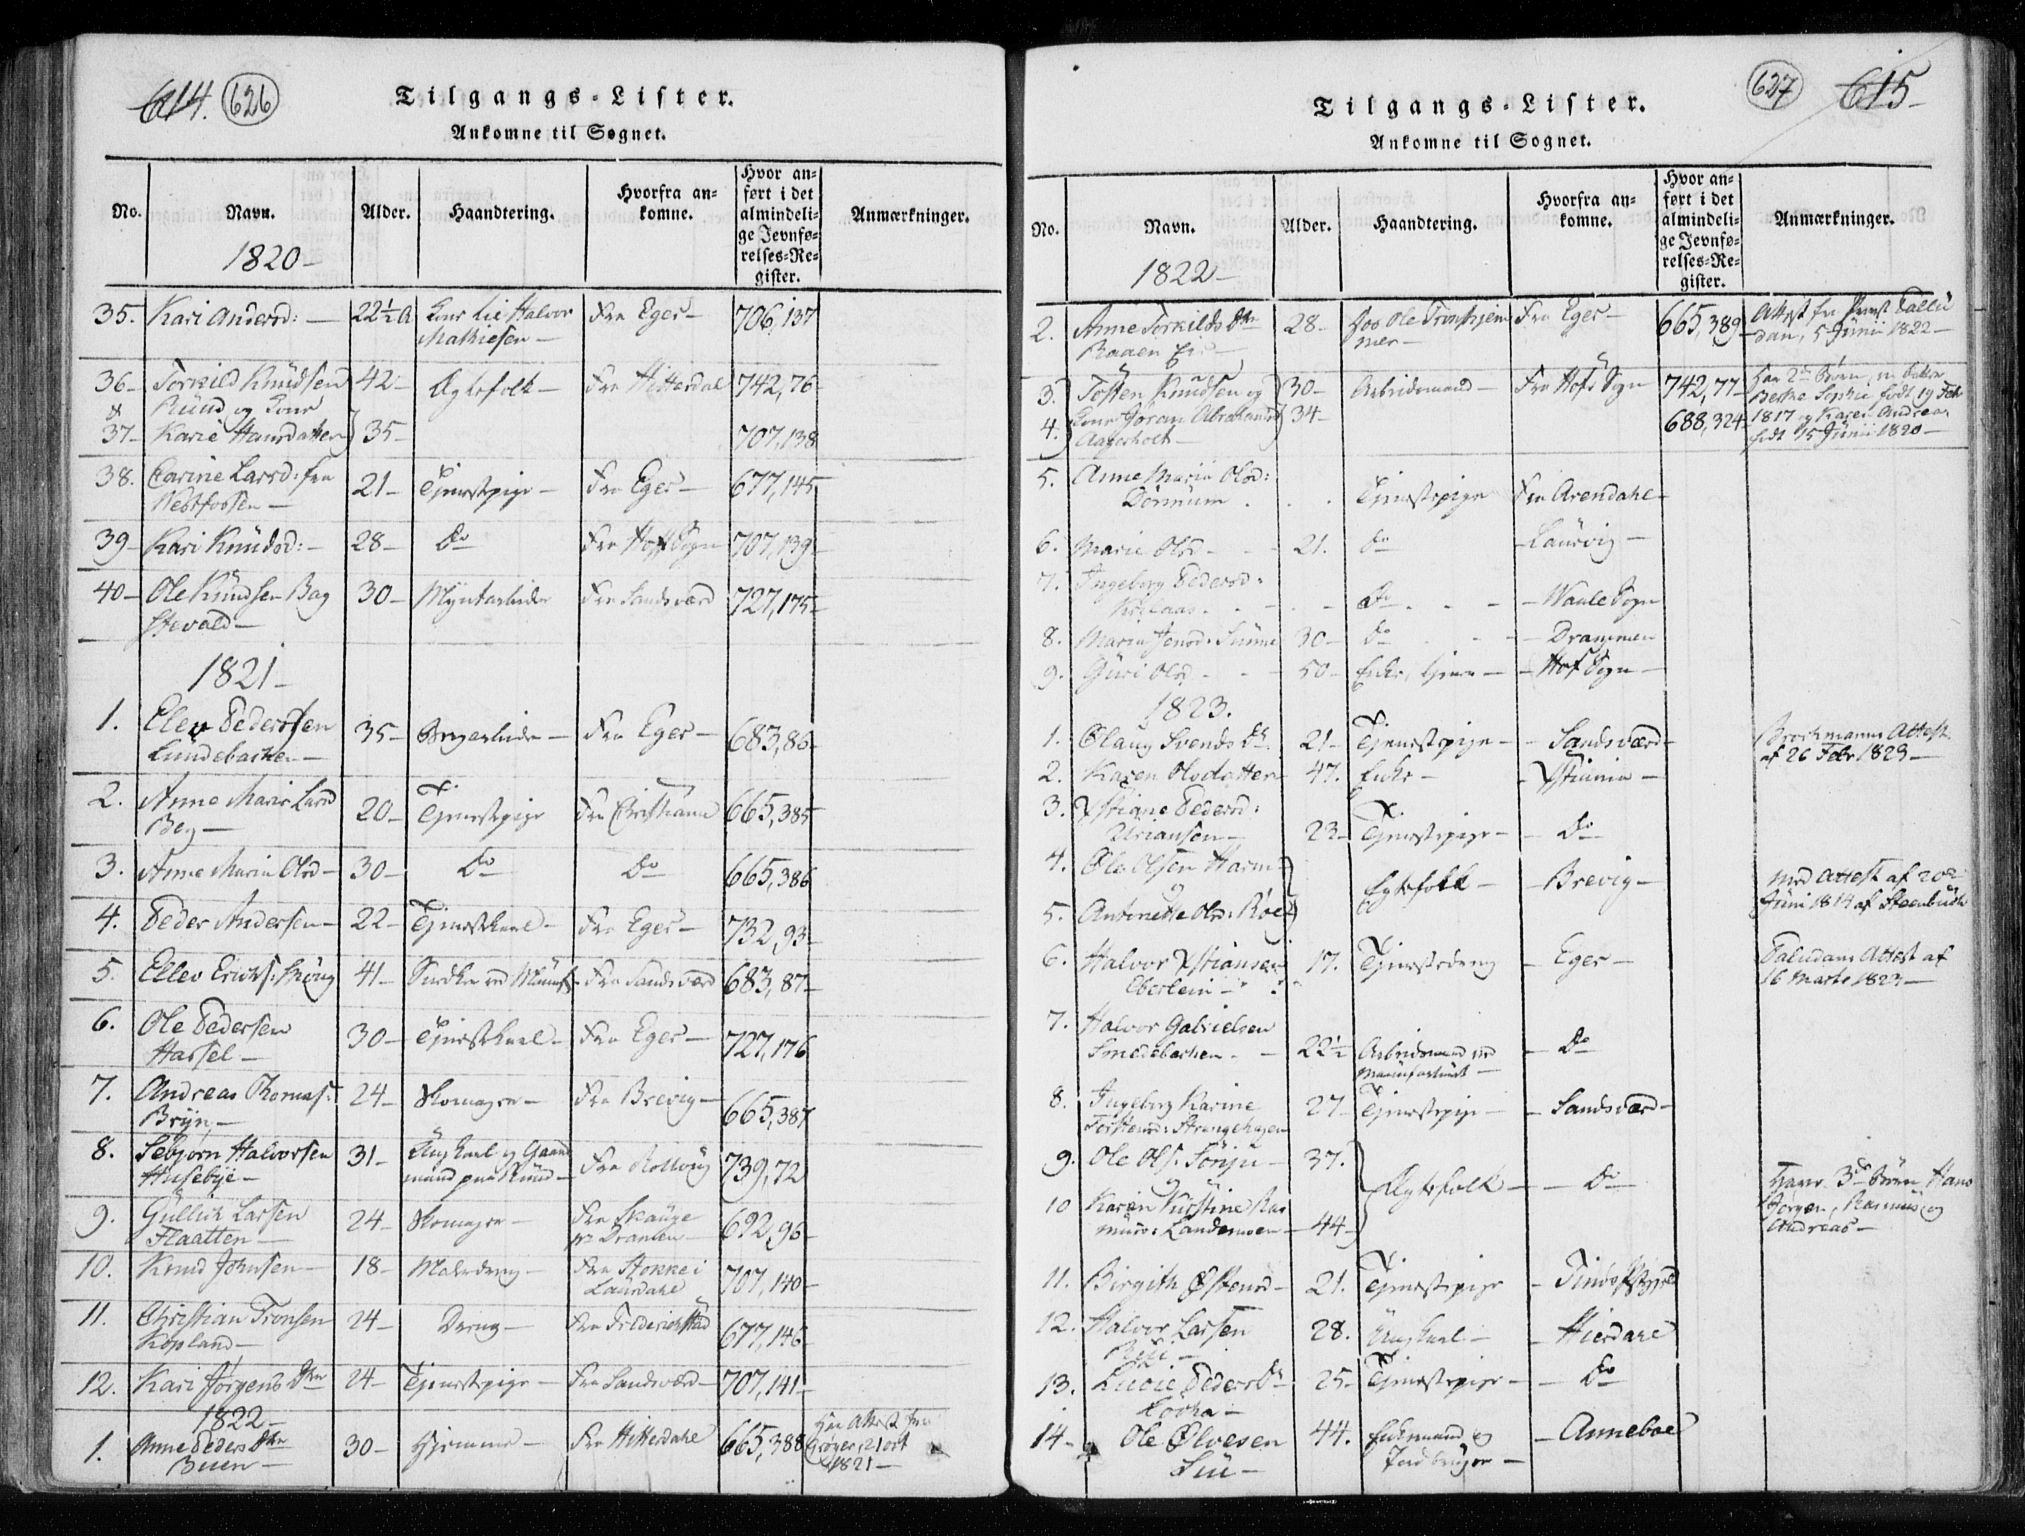 614. 626
Tilgangs-Lister.
Ankomne til Sognet.
No. Navn. Alder. Haandtering. Hvorfra ankomne. Hvor anført i det almindelige Jevnførelses-Register. Anmærkninger.
1820
35. Kari Andersd: 22½ A Kone til Halvor Fra Eger 706,137
Mathiesen
36 Torkild Knudsen 42 Ægtefolk Fra Hitterdal 742,76
& Ruud og Kone
37 Karie Hansdatter 35 707,138
38. Carine Larsd: fra 21 Tjenestepige Fra Eger 677,145
Vestfossen
39 Kari Knudsd: 28 do Fra Hoff Sogn 707,139
40 Ole Knudsen Bag 30 Myntarbeider Fra Sandsværd 727,175
Stevald
1821
1. Elev Pedersen 35 Fra Eger 683,86
Lundebakken
2. Anne Marie Larsd 20 Tjenestepige Fra Christiania 665,385
Beg
3. Anne Maria Olsd 30 do do 665,386
4. Peder Andersen 22 Tjenestekarl Fra Eger 732,93
5. Ellev Ericks: 41 Fra Sandsværd 683,87
6. Ole Pedersen 30 Tjenestekarl Fra Eger 727,176
Hassel
7. Andreas Thomas: 24 Skomager Fra Brevig 665,387
Bryn
8. Sebjørn Halvorsen 31 Ungkarl og Gaard Fra Rollaug 739,72
Husebye mand paa Ruud
9. Gullich Larsen 24 Skomager Fra Skauge 692,96
Flaatten pr Dramen
10. Knud Johnsen 18 Fra Stokke i 707,140
Laurdahl
11. Christian Tronsen 24 Dreng Fra Friderichstad 677,146
Kopland
12. Kari Jørgens Dtr 24 Tjenestepige Fra Sandsværd 707,141
1822
1. Anne Peders Dtr 30 Hjemme Fra Hitterdahl 665,388 Har Attest fra
Buen 21 Oct
1821
627 615
Tilgangs-Lister.
Ankomne til Sognet.
No. Navn. Alder. Haandtering. Hvorfra ankomne. Hvor anført i det almindelige Jevnførelses-Register. Anmærkninger.
1822
2. Anne Torkilds Dtr 28 hos Ole Tronhjem Fra Eger 665,389 Attest fra Provst Pallu
Raaen mer dan, 5 Junii 1822
3. Tosten Knudsen og 30 Arbeidsmand Fra Hofs Sogn 742,77 Har 2 Børn,
Berthe Sophie født 19 Feb
4. Kone Joran Abrahamsd 34 688,324 1817 og Karen Andrea
Aagerholt født 15 Junii 1820
5. Anne Maria Olsd: Tjenestepige Fra Arendahl
Dørmum
6. Marie Olsd 21. do Laurvig
7. Ingeborg Pedersd: do Waale Sogn
8. Maria Jensd: 30 do Drammen
9. Guri Olsd 50 Enke, tjener Hof Sogn
1823.
1. Olaug Svends Dr 21 Tjenestepige Sandsværd Brochmanns Attest
af 26 Febr 1823
2. Karen Olsdatter 47. Enke Xstiania
3. Xstiane Pedersd: 23 Tjenestepige do
Uriansen
4. Ole Olsen Harm Ægtefolk Brevig Med Attest af 20de
og Junii 1814 af Steenbuch
5. Antonette Olsd: Røe
6. Halvor Xstiansen 17. Tjenestedreng Eger Paludans Attest af
Eberlein 16 Marts 1823
7. Halvor Gabrielsen
Smedebakken 22½ Arbeidsmand ved do
8. Ingeborg Karine 27 Tjenestepige Sandsværd
Torstensd: Strangehagen
9. Ole Ols: 37. Ægtefolk do Have 3de Børn Hans
og Jørgen, Rasmus og
10 Karen Kirstine Ras Andreas
musd: Landemoen 44
11. Birgith Østensd 21. Tjenestepige
12. Halvor Larsen 28. Ungkarl Hierdahl
13. Livie Peders Dr 25 Tjenestepige do
14 Ole Olvesen 44. Enkemand og Annebae